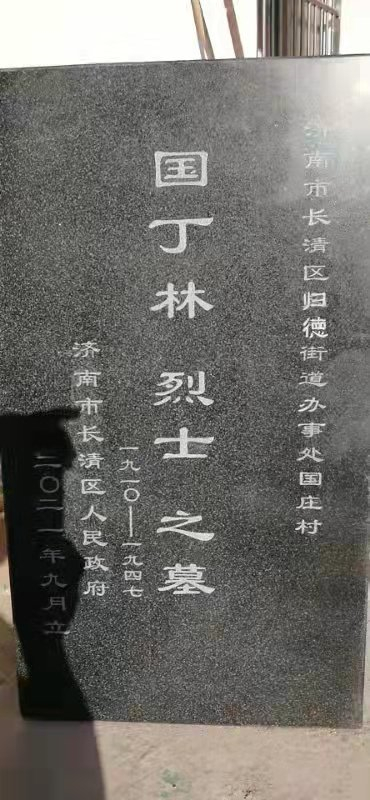 济南市长清区归德街道办事处国庄村
国丁林烈士之墓
一九一〇——一九四七
济南市长清区人民政府
二〇二一年九月立